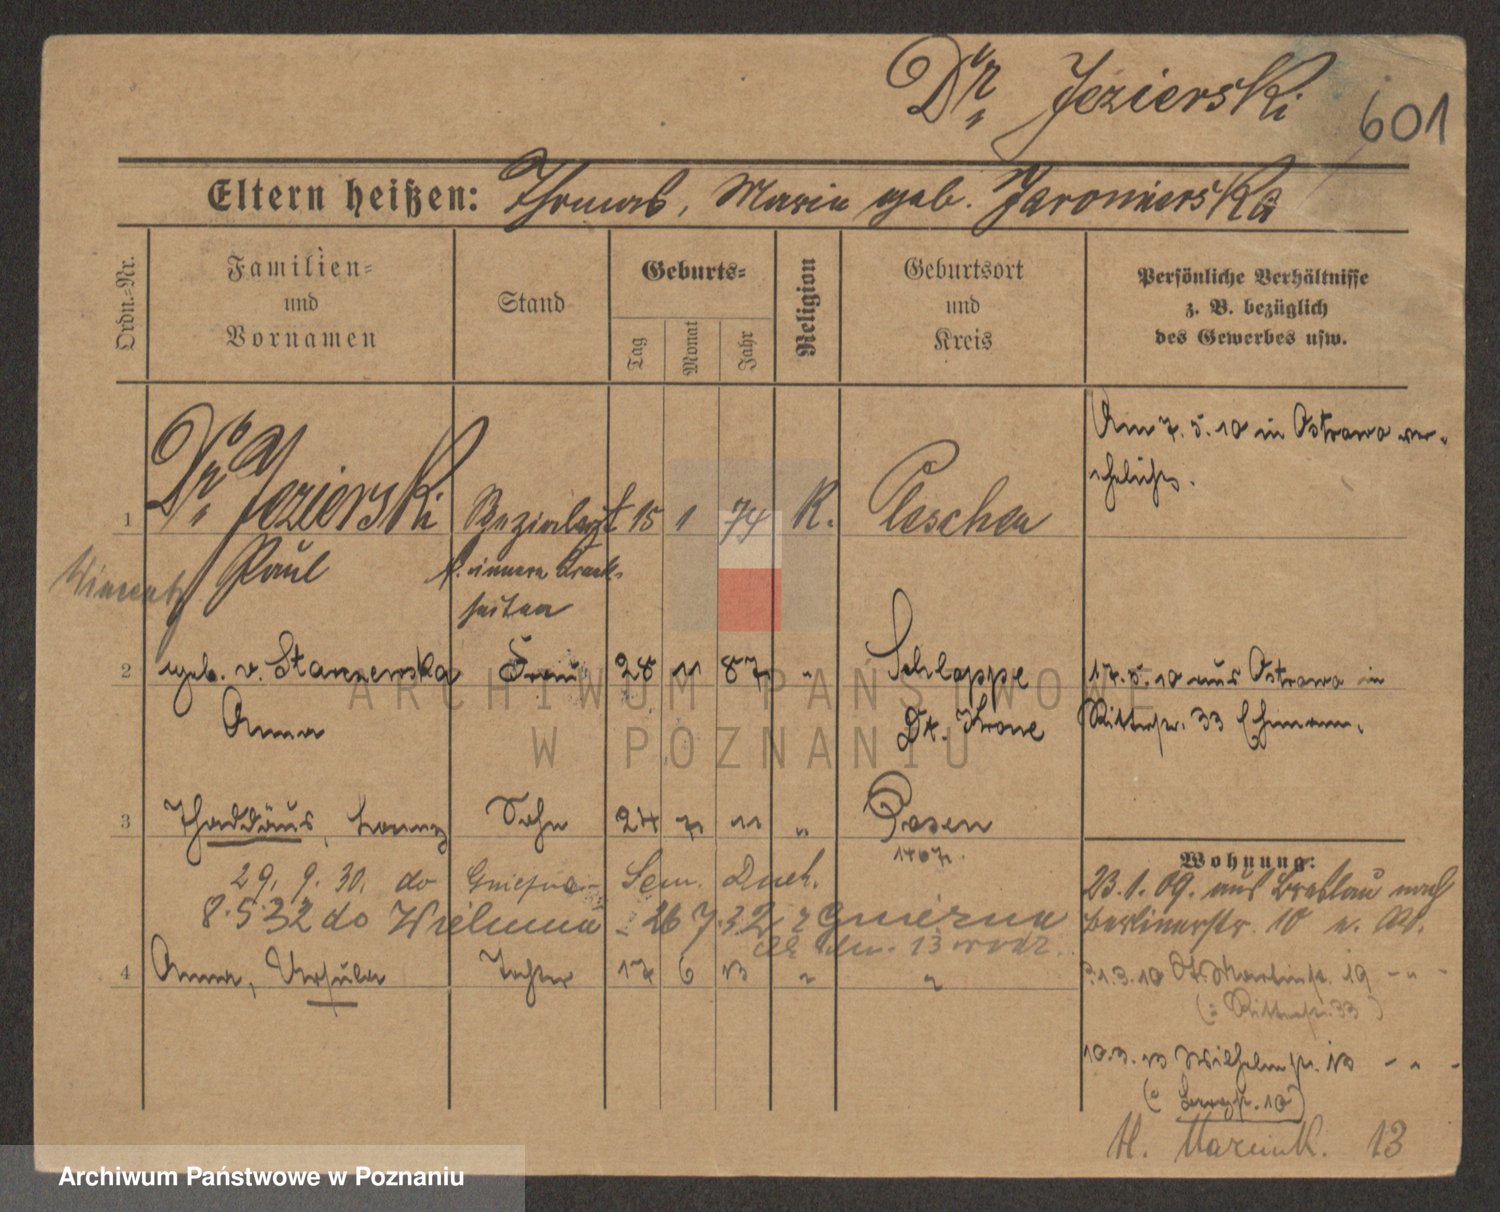 Dr. Jezierski
601
Eltern heißen: Thomas, Maria geb. Jaronierska
Ordn.-Nr.
Familien-
und
Vornamen
Stand
Geburts-
Tag
Monat
Jahr
Religion
Geburtsort
und
Kreis
Persönliche Verhältnisse
z. B. bezüglich
des Gewerbes usw.
Am 7. 5. 10 in Ostrowo ver-
ehelicht.
1 Dr. Jezierski Spezialarzt 15 1 74 K. Pleschen
Paul f. innere Krank-
heiten
Wincenty
2 geb. v. Starzewska Frau 28 11 87 " Schloppe 17. 5. 10 aus Ostrowo in
Anna Dt. Krone Ritterstr. 33
3 Thaddäus, Sohn 24 7 11 " Posen
1407
29. 9. 30. do Gniezna - Sem. Duch.
8.5.32 do - 26 7.32 z Gniezna
13
4 Anna, Ursula Tochter 17 6 13 " "
Wohnung:
23.1.09. aus Breslau nach
Berlinerstr. 10
.3.10 St. Martinstr. 19 - " -
(= Ritterstr. 33)
10.3.13 Wilhelmstr. - " -
M. Marcink. 13
ARCHIWUM PAŃSTWOWE
W POZNANIU
Archiwum Państwowe w Poznaniu